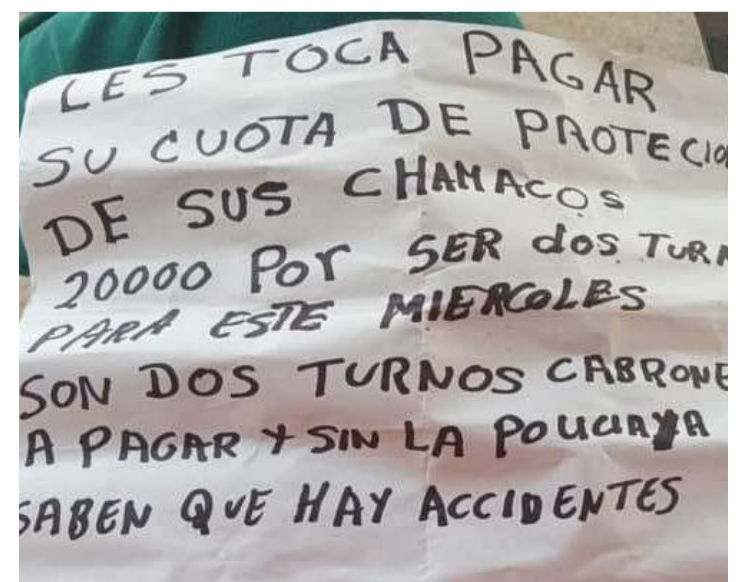 LES TOCA PAGAR
SU CUOTA DE PROTECIO
DE SUS CHAMACOS
20000 POR SER dOS TURN
PARA ESTE MIERCOLES
SON DOS TURNOS CABRONE
A PAGAR Y SIN LA POLICIA YA
SABEN QUE HAY ACCIDENTES